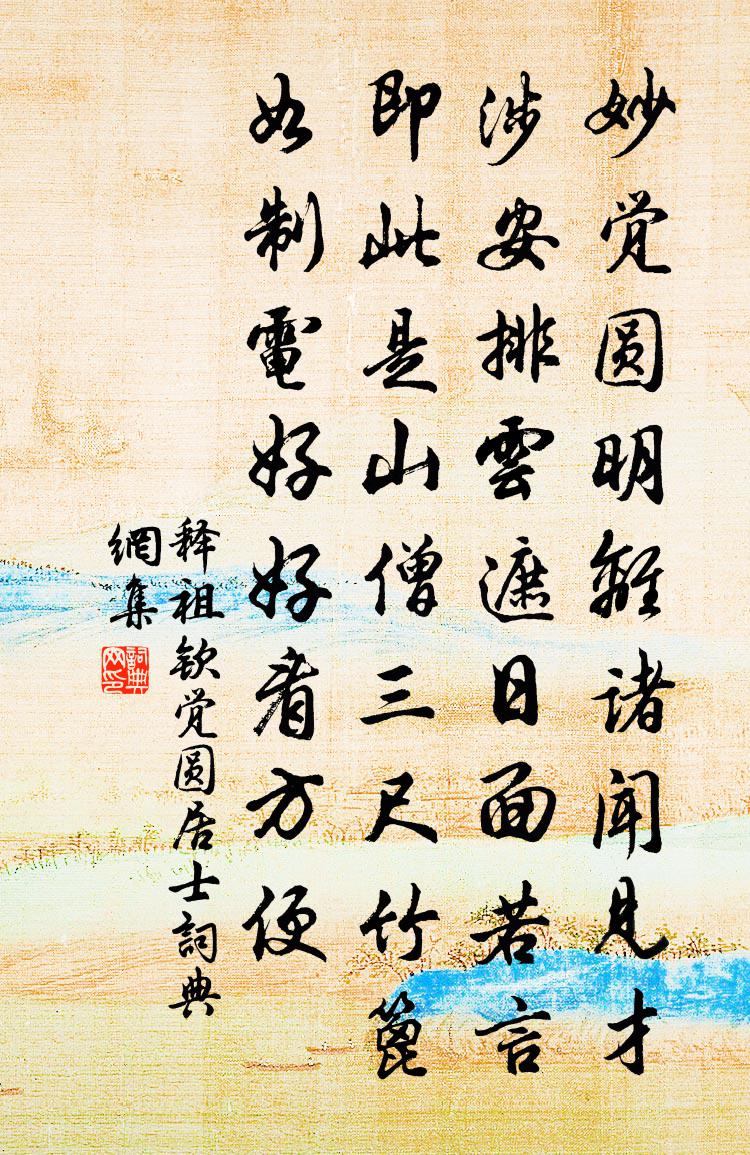 妙觉圆明離诸闻見才
涉安排雲遮日面若言
即此是山僧三尺竹篦
如制電好好看方便
释祖钦觉圆居士詞典
網集
詞典
网印